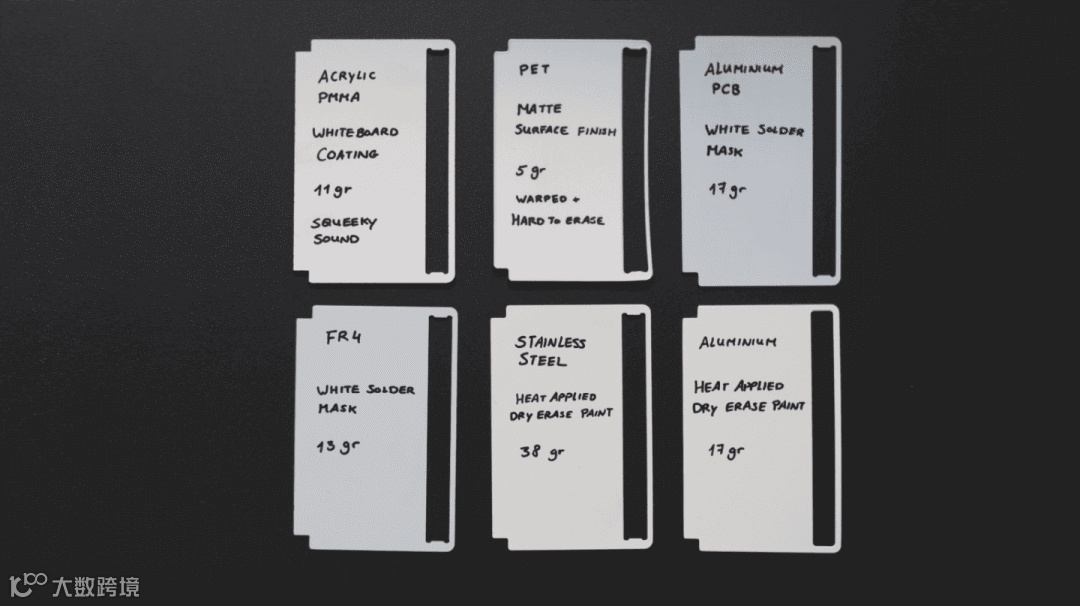 ACRYLIC
PMMA
WHITEBOARD
COATING
11 gr
SQUEEKY
SOUND
PET
MATTE
SURFACE FINISH
5 gr
WARPED +
HARD TO ERASE
ALUMINIUM
PCB
WHITE SOLDER
MASK
17 gr
FR4
WHITE SOLDER
MASK
13 gr
STAINLESS
STEEL
HEAT APPLIED
DRY ERASE PAINT
38 gr
ALUMINIUM
HEAT APPLIED
DRY ERASE PAINT
17 gr
大数跨境